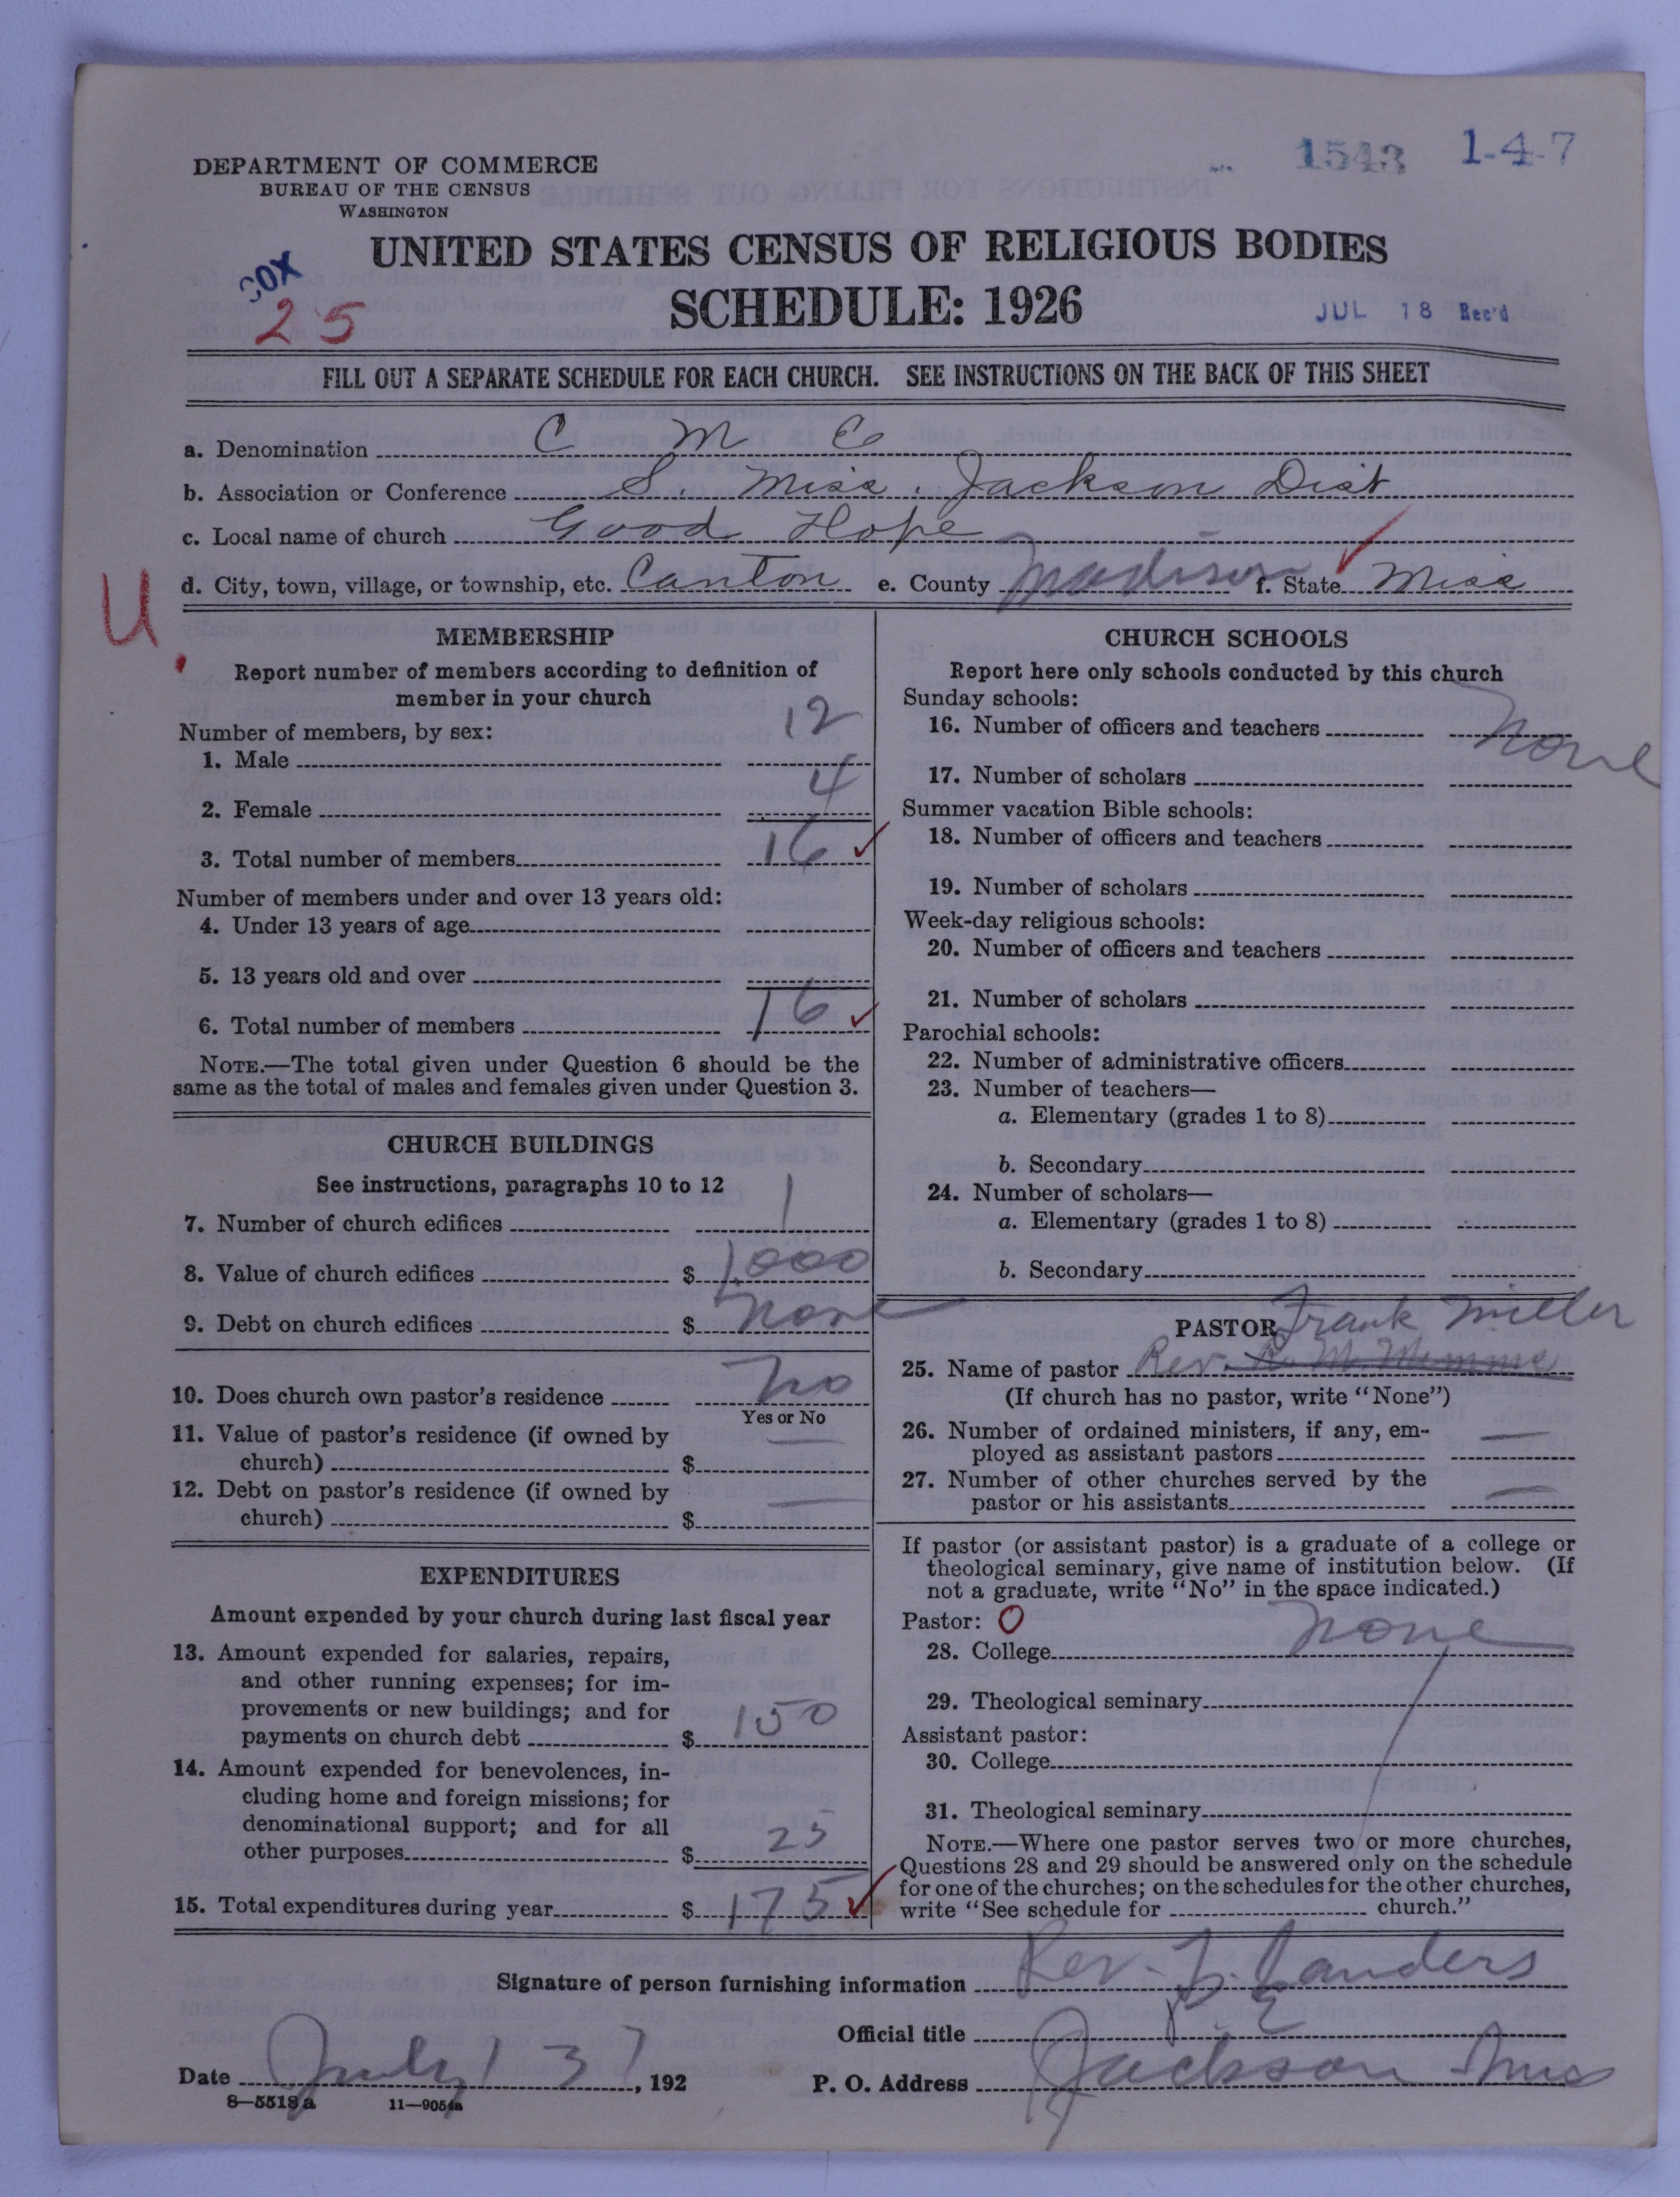 1543 1-4-7
DEPARTMENT OF COMMERCE
BUREAU OF THE CENSUS
WASHINGTON
UNITED STATES CENSUS OF RELIGIOUS BODIES
COX
25
SCHEDULE: 1926
JUL 18 Rec'd
FILL OUT A SEPARATE SCHEDULE FOR EACH CHURCH. SEE INSTRUCTIONS ON THE BACK OF THIS SHEET
a. Denomination C M E
b. Association or Conference S. Miss. Jackson Dist
c. Local name of church Good Hope
d. City, town, village, or township, etc. Canton e. County Madison f. State Miss
U
MEMBERSHIP
Report number of members according to definition of
member in your church
Number of members, by sex:
1. Male 12
2. Female 4
3. Total number of members 16
Number of members under and over 13 years old:
4. Under 13 years of age
5. 13 years old and over
6. Total number of members 16
NOTE.—The total given under Question 6 should be the
same as the total of males and females given under Question 3.
CHURCH BUILDINGS
See instructions, paragraphs 10 to 12
7. Number of church edifices 1
8. Value of church edifices $ 1,000
9. Debt on church edifices $ None
10. Does church own pastor's residence No
Yes or No
11. Value of pastor's residence (if owned by
church) $ —
12. Debt on pastor's residence (if owned by
church) $ —
EXPENDITURES
Amount expended by your church during last fiscal year
13. Amount expended for salaries, repairs,
and other running expenses; for im-
provements or new buildings; and for
payments on church debt $ 150
14. Amount expended for benevolences, in-
cluding home and foreign missions; for
denominational support; and for all
other purposes $ 25
15. Total expenditures during year $ 175
CHURCH SCHOOLS
Report here only schools conducted by this church
Sunday schools:
16. Number of officers and teachers None
17. Number of scholars
Summer vacation Bible schools:
18. Number of officers and teachers
19. Number of scholars
Week-day religious schools:
20. Number of officers and teachers
21. Number of scholars
Parochial schools:
22. Number of administrative officers
23. Number of teachers—
a. Elementary (grades 1 to 8)
b. Secondary
24. Number of scholars—
a. Elementary (grades 1 to 8)
b. Secondary
PASTOR Frank Miller
25. Name of pastor Rev.
(If church has no pastor, write "None")
26. Number of ordained ministers, if any, em-
ployed as assistant pastors —
27. Number of other churches served by the
pastor or his assistants —
If pastor (or assistant pastor) is a graduate of a college or
theological seminary, give name of institution below. (If
not a graduate, write "No" in the space indicated.)
Pastor: O
28. College None
29. Theological seminary
Assistant pastor:
30. College
31. Theological seminary
NOTE.—Where one pastor serves two or more churches,
Questions 28 and 29 should be answered only on the schedule
for one of the churches; on the schedules for the other churches,
write "See schedule for church."
Signature of person furnishing information Rev. Sanders
Official title P E
Date July 13 7, 192 P. O. Address Jackson Miss
8—5518a 11—9054a